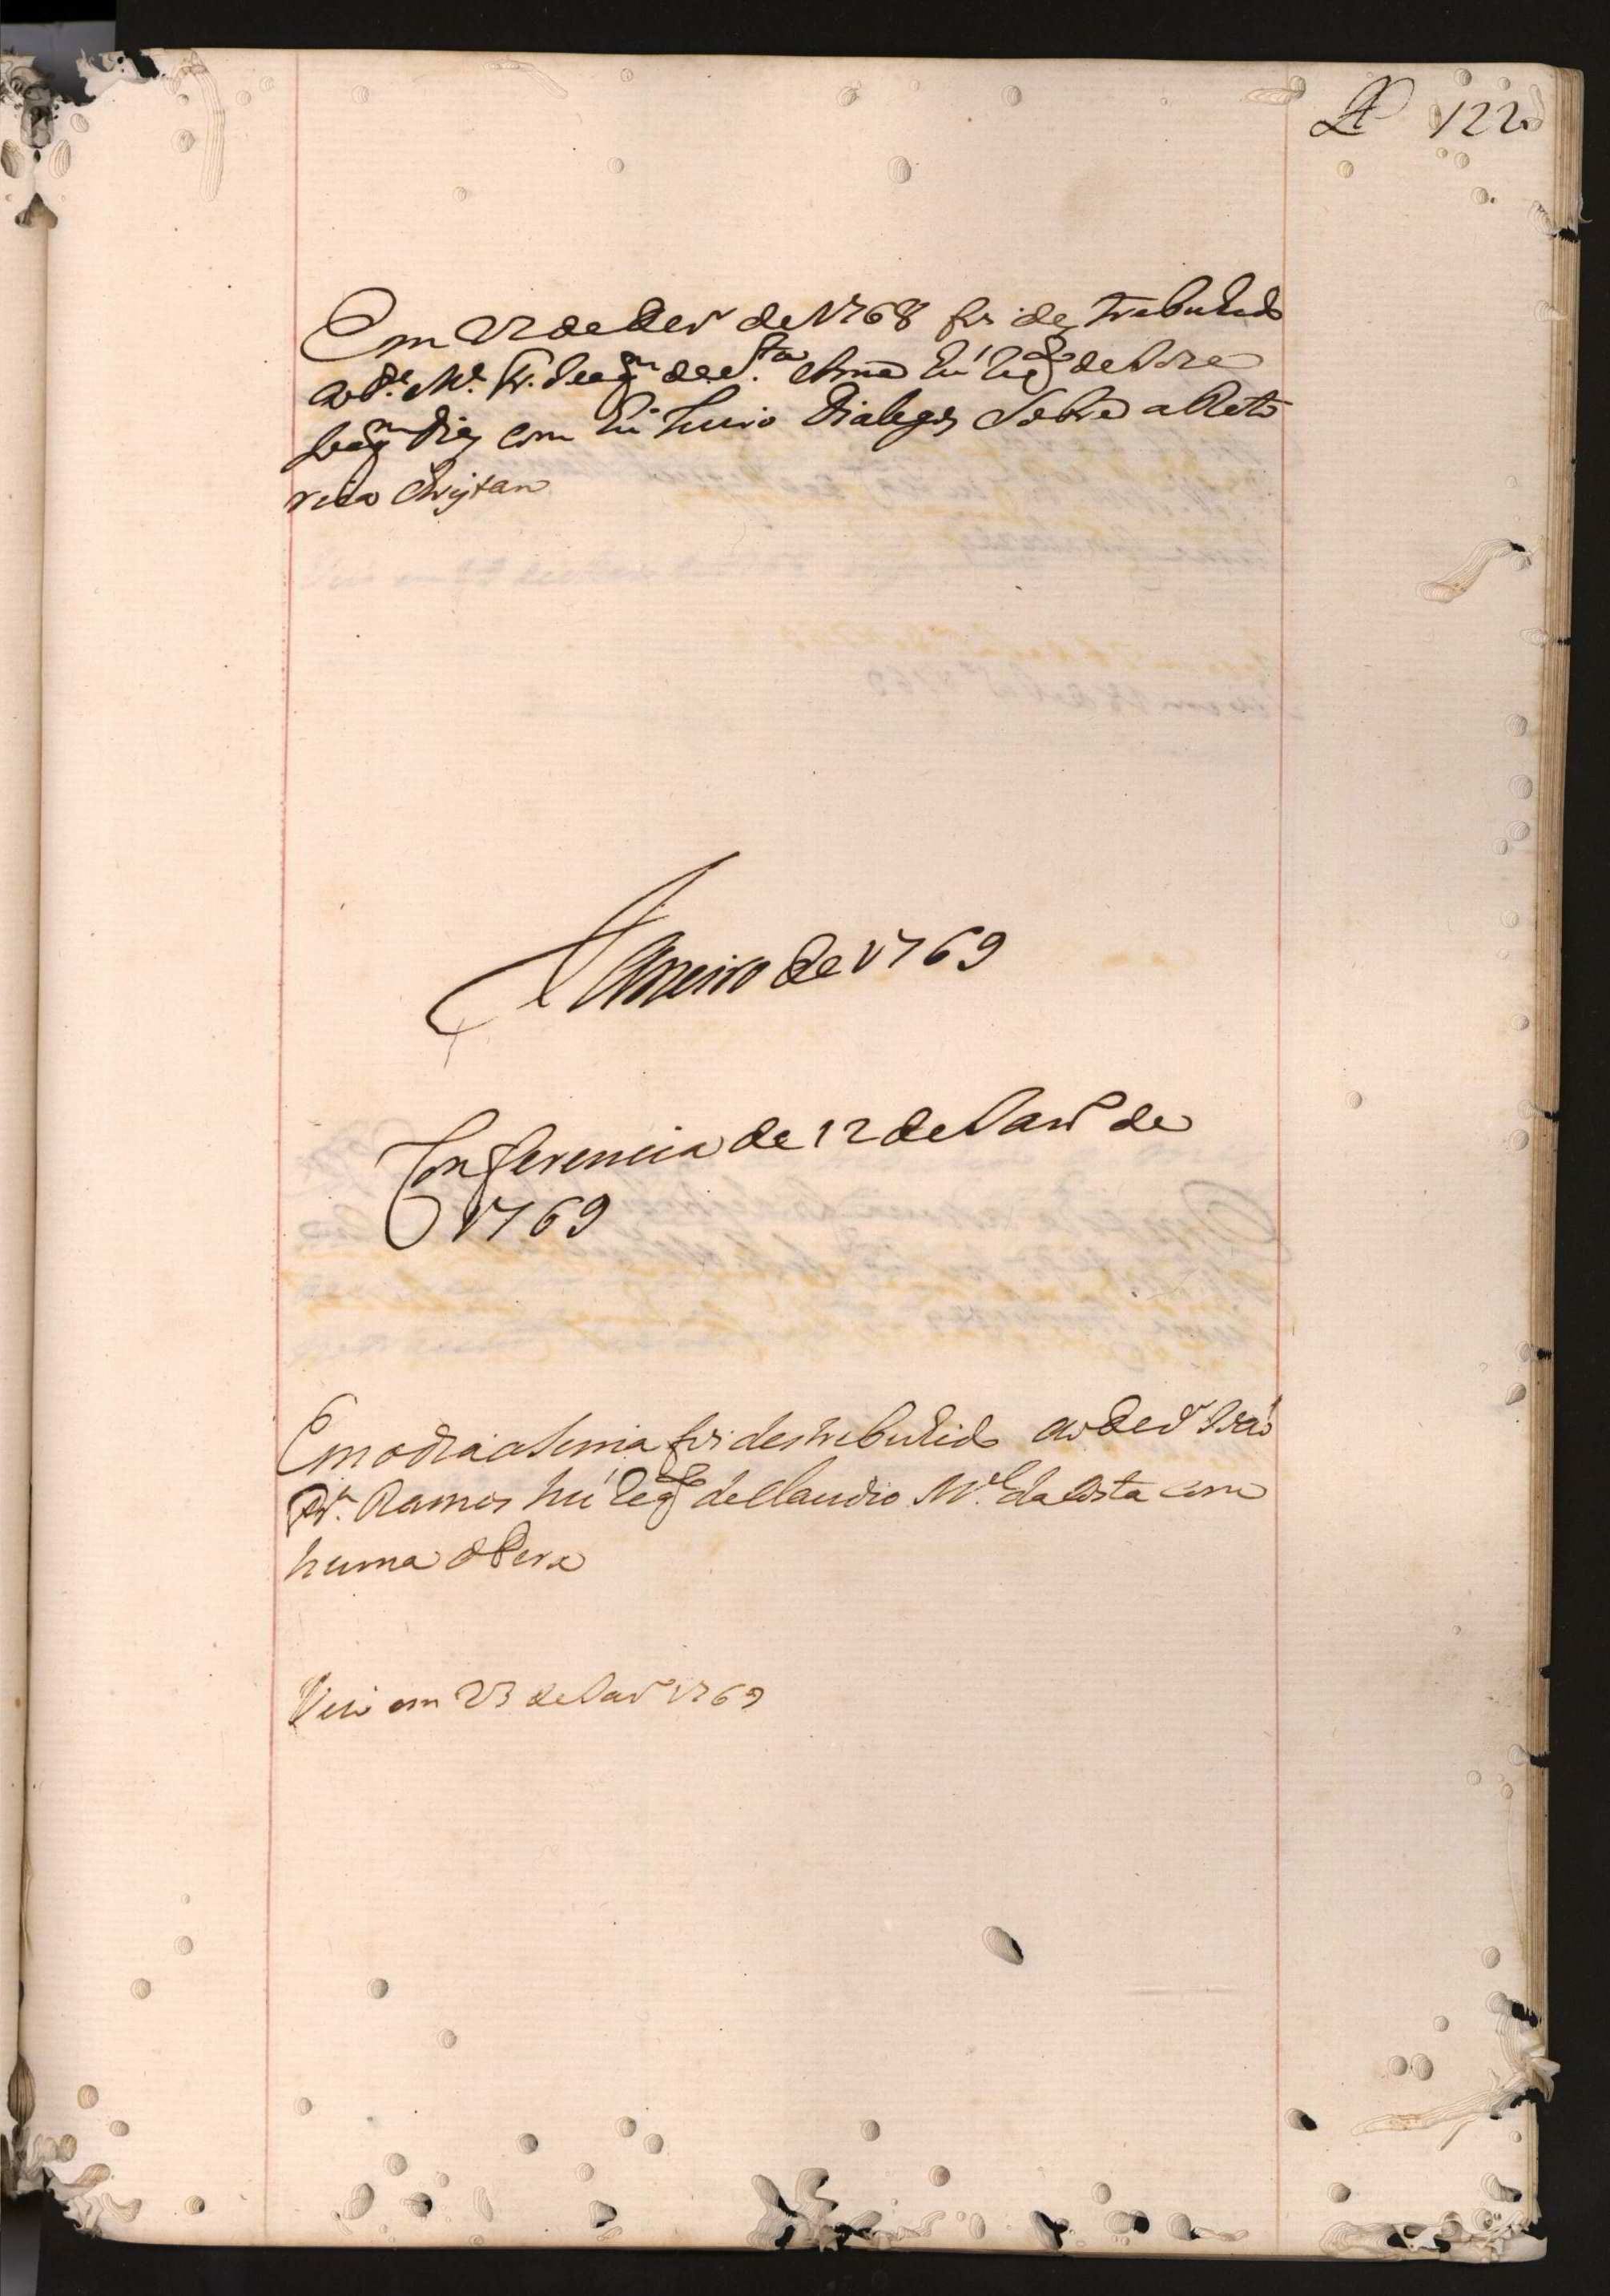 122
Em 22 de Dezr.o de 1768 foi destrebuhido
ao P.e M.e Fr. Joaq.m de S.ta Anna hú Req.to de Jose
Joaq.m com hú Livro Dialogos Sobre a Reto
rica Christan
Janeiro de 1769
Conferencia de 12 de Janr.o de
1769
Em o dia asima foi destrebuhido ao Dez.or João
Pr.a Ramos hú Req.to de Claudio M.el da Costa com
huma Obera
Veio em 23 de Janr.o 1769